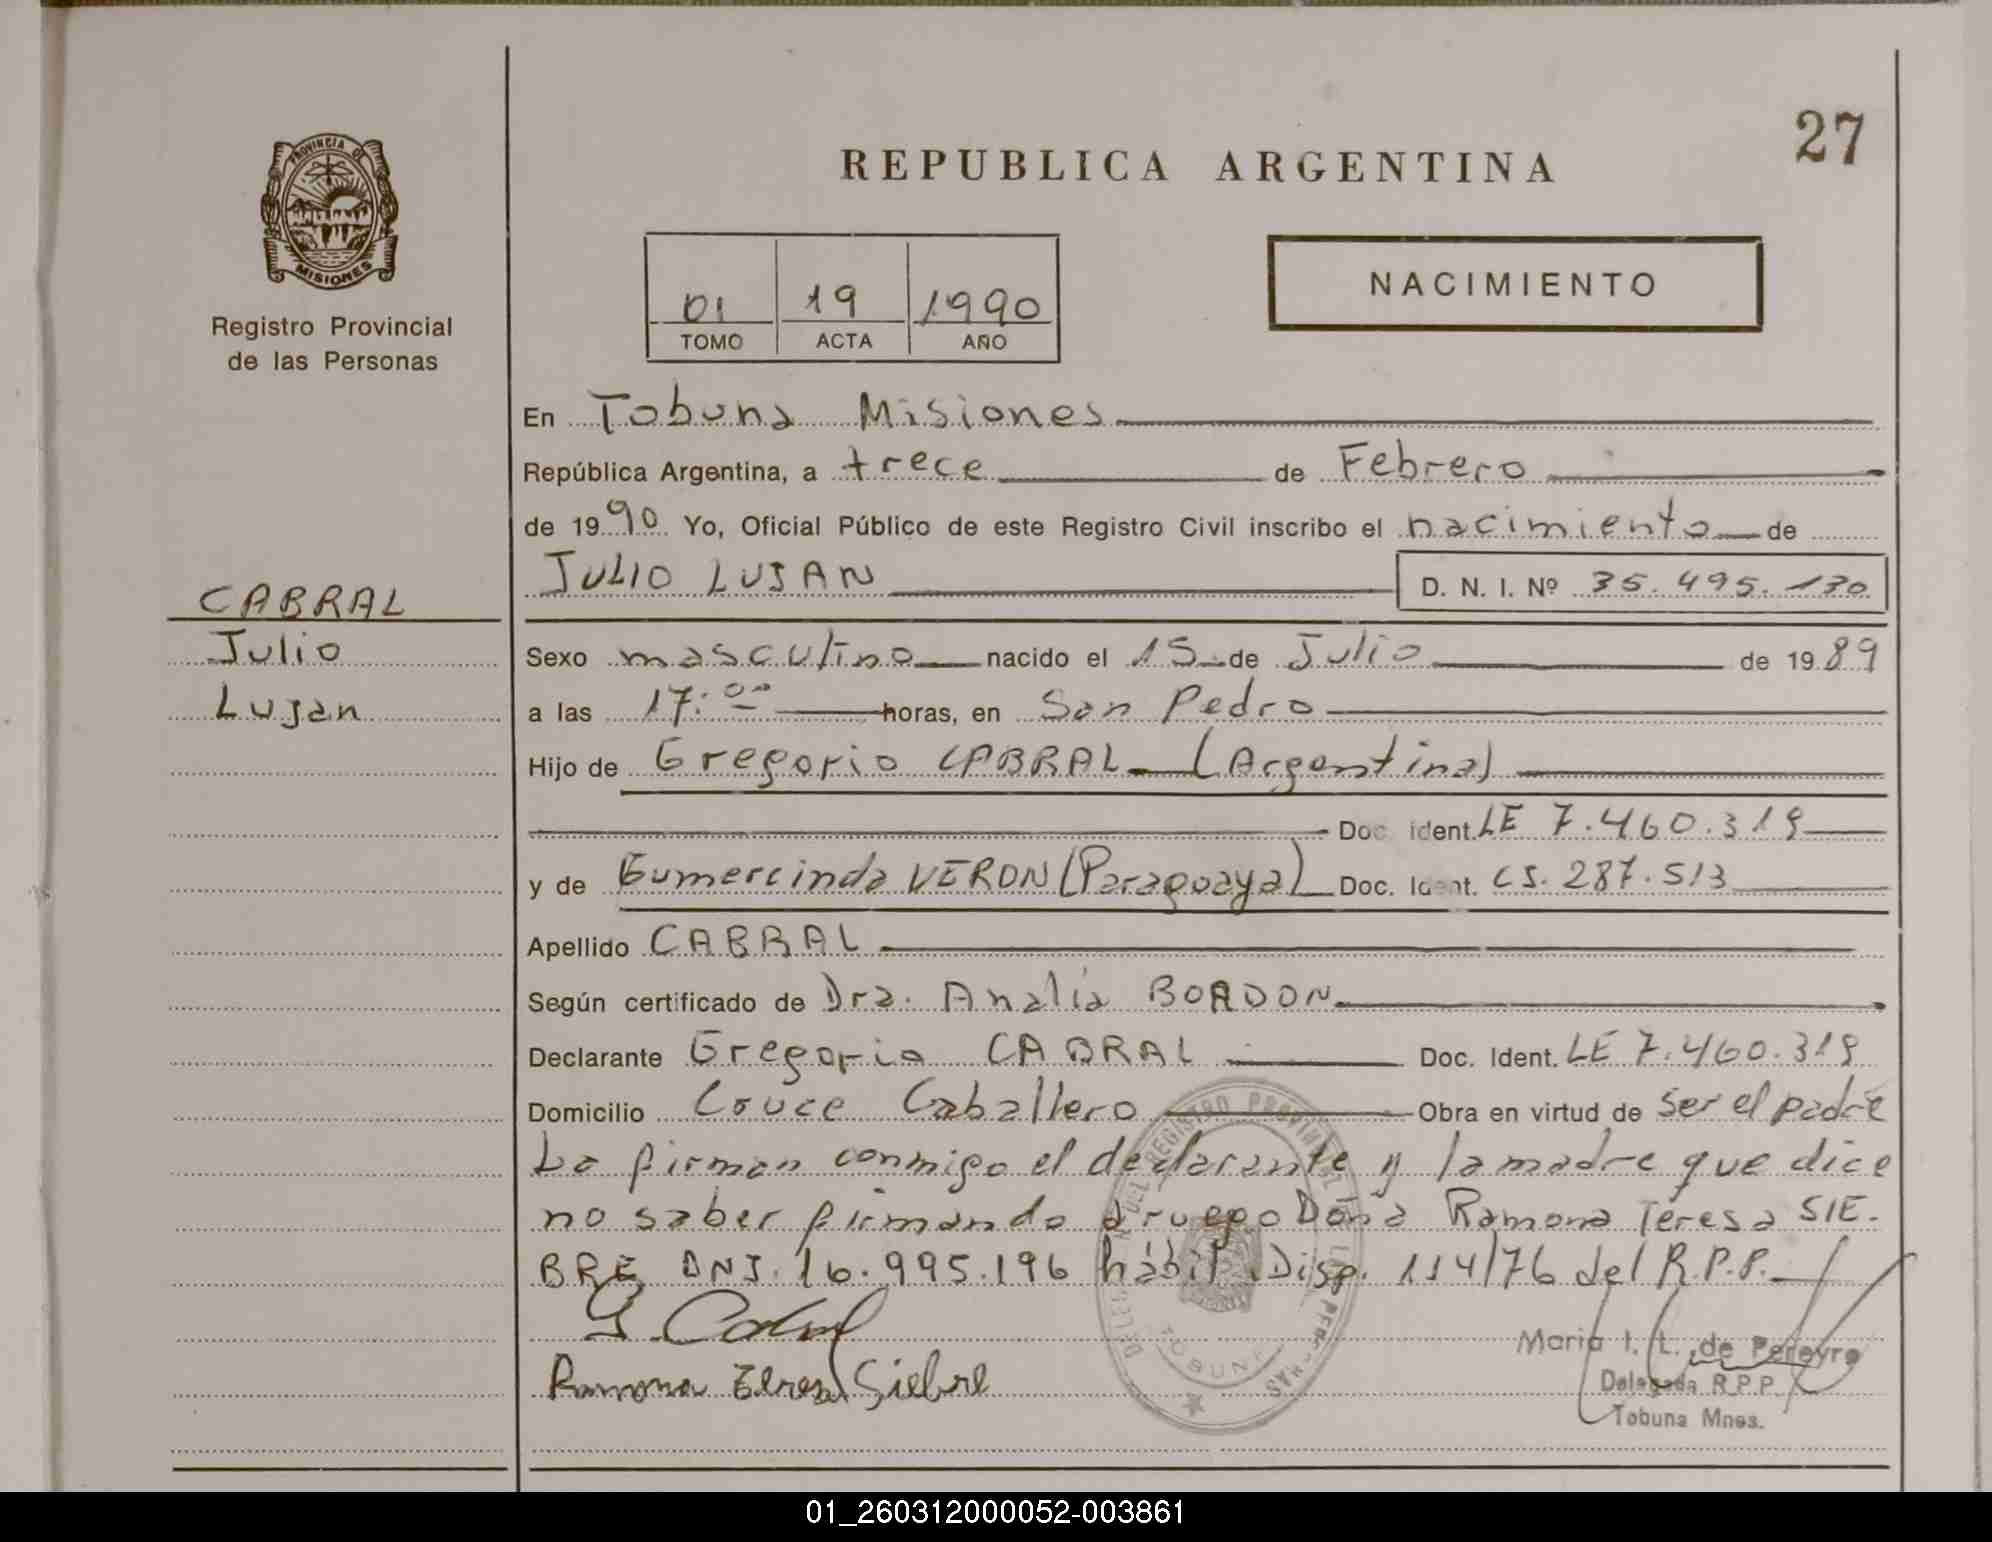 27
REPUBLICA ARGENTINA
PROVINCIA DE
MISIONES
Registro Provincial
de las Personas
01 19 1990
TOMO ACTA AÑO
NACIMIENTO
En Tobuna Misiones
República Argentina, a trece de Febrero
de 1990 Yo, Oficial Público de este Registro Civil inscribo el nacimiento de
JULIO LUJAN D. N. I. Nº 35.495.130
CABRAL
Julio
Lujan
Sexo masculino nacido el 15 de Julio de 1989
a las 17:00 horas, en San Pedro
Hijo de Gregorio CABRAL (Argentina)
Doc. ident. LE 7.460.319
y de Gumercinda VERON (Paraguaya) Doc. Ident. CS. 287.513
Apellido CABRAL
Según certificado de Dra. Analia BORDON
Declarante Gregorio CABRAL Doc. Ident. LE 7.460.319
Domicilio Cruce Caballero Obra en virtud de ser el padre
La firman conmigo el declarante y la madre que dice
no saber firmando a ruego Doña Ramona Teresa SIE-
BRE DNI. 16.995.196 hábil Disp. 114/76 del R.P.P.
G Cabral
Ramona Teresa Siebre
DELEGACION DEL REGISTRO PROVINCIAL DE LAS PERSONAS
TOBUNA
Maria I. L. de Pereyra
Delegada R.P.P.
Tobuna Mnes.
01_260312000052-003861